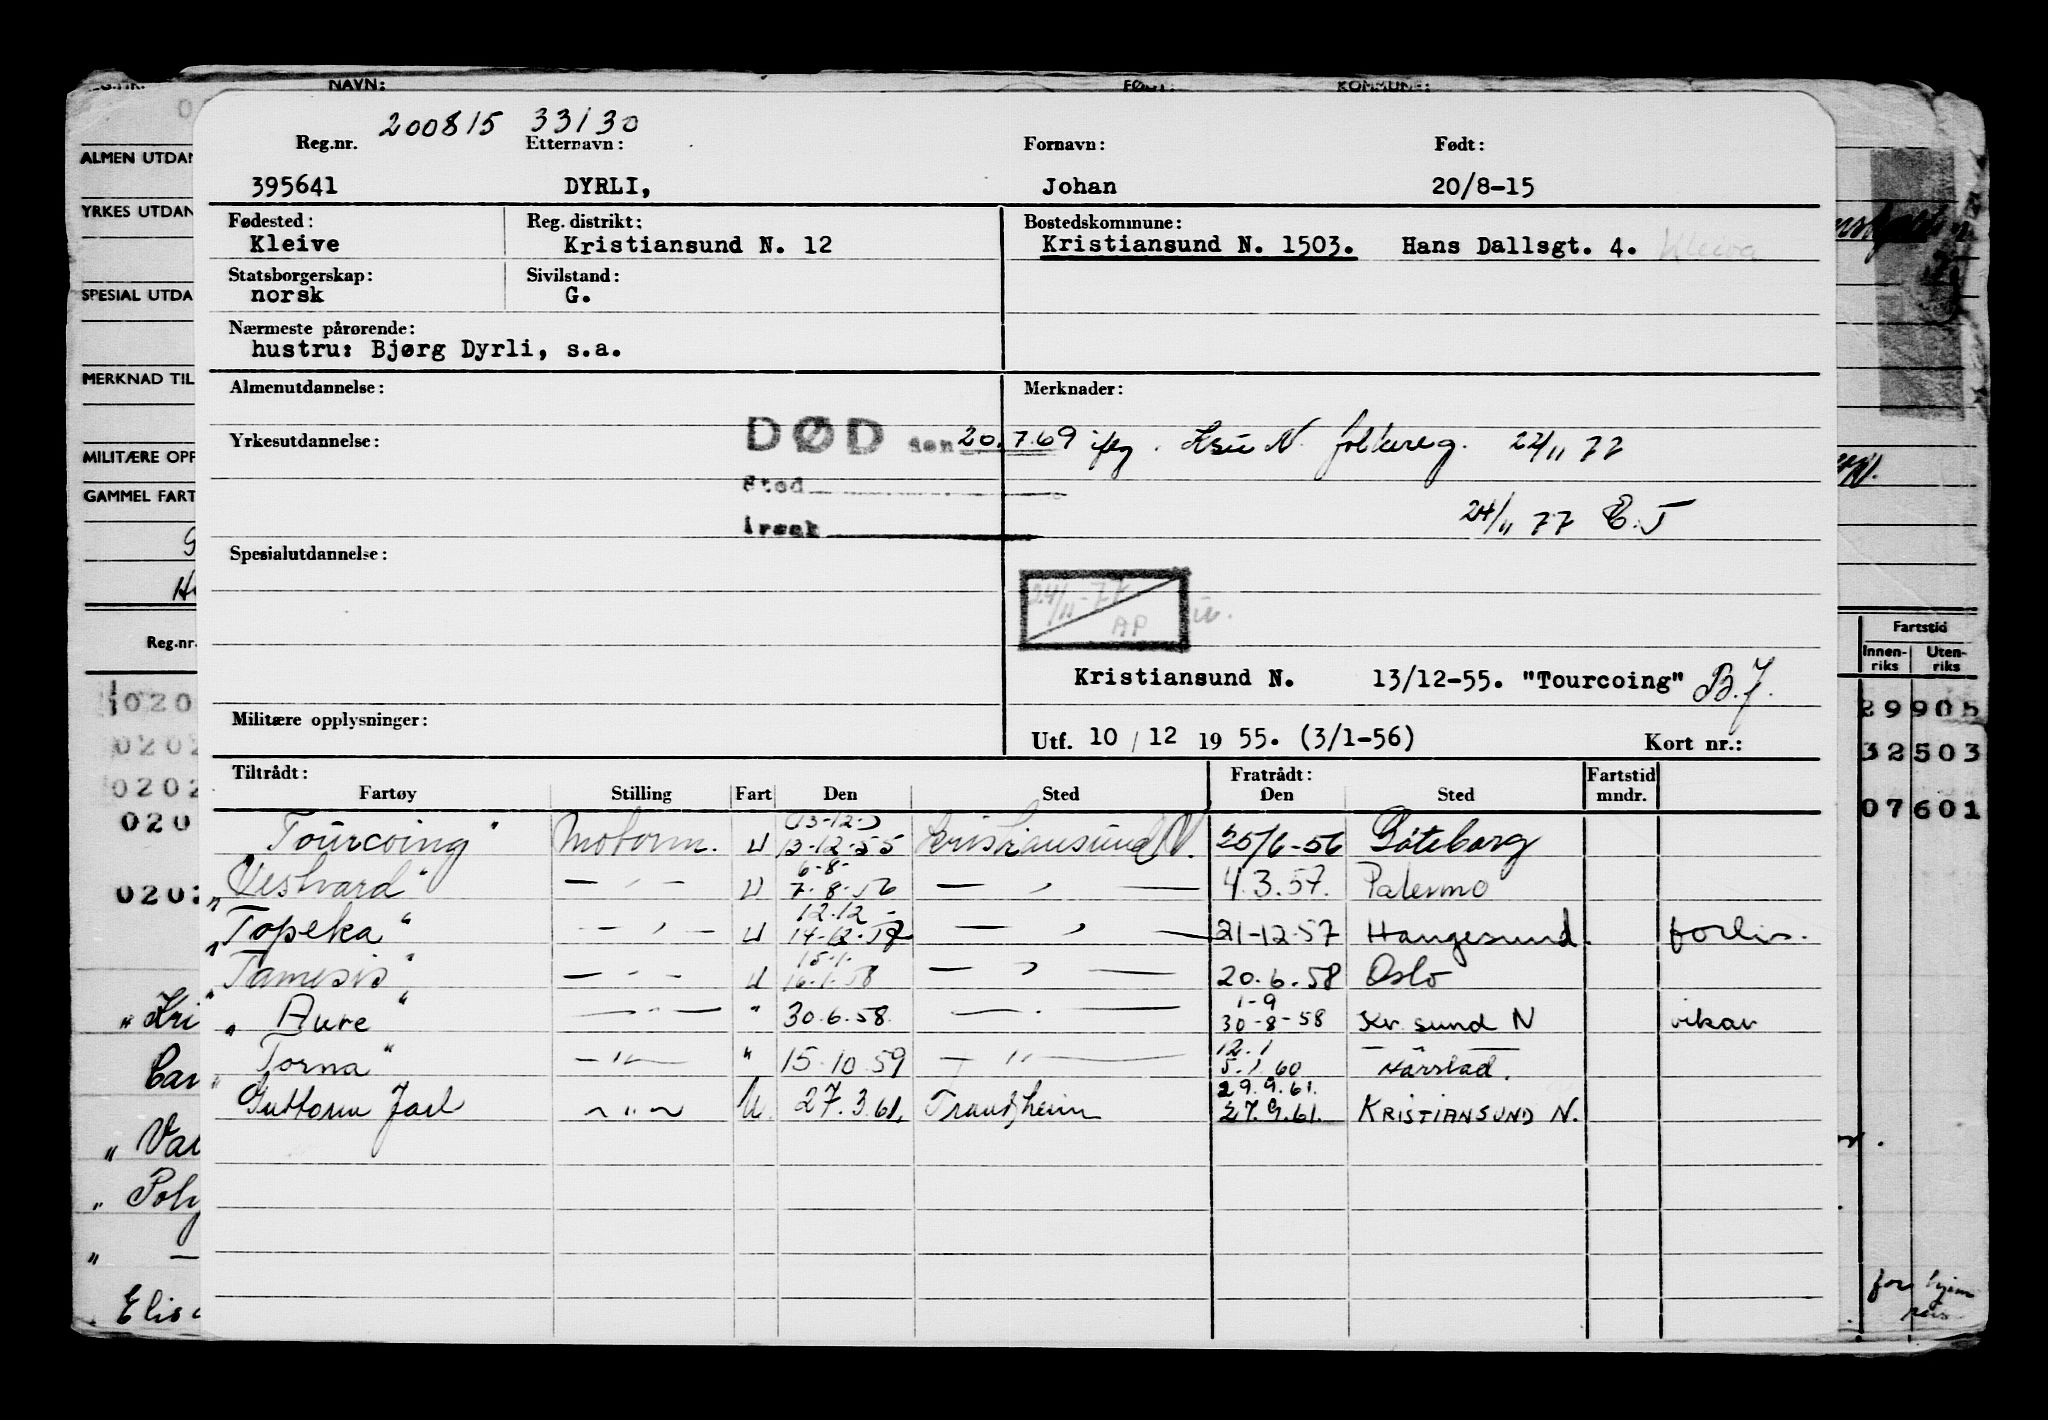 NAVN: FØDT: KOMMUNE:
200815 33130
Reg.nr. Etternavn: Fornavn: Født:
395641 DYRLI, Johan 20/8-15
Fødested: Reg. distrikt: Bostedskommune:
Kleive Kristiansund N. 12 Kristiansund N. 1503. Hans Dallsgt. 4. Kleiva
Statsborgerskap: Sivilstand:
norsk G.
Nærmeste pårørende:
hustru: Bjørg Dyrli, s.a.
Almenutdannelse: Merknader:
DØD den 20.7.69 iflg. Ksu N folkereg. 22/11 77
Yrkesutdannelse:
Sted
årsak
24/11 77 E.T
Spesialutdannelse:
24/11-77
AP
Kristiansund N. 13/12-55. "Tourcoing" B.J.
Militære opplysninger:
Utf. 10 / 12 19 55. (3/1-56) Kort nr.:
Tiltrådt: Fratrådt: Fartstid
Fartøy Stilling Fart Den Sted Den Sted mndr.
13-12-5
Tourcoing" Motorm. U 12-12-55 Kristiansund N. 25/6-56 Göteborg
6-8-
"Vestvard" — " — U 7-8-56 — " — 4.3.57. Palermo
12.12-
"Topeka" — " — U 14-12-57 — " — 21-12-57 Haugesund. forlis.
15.1.
"Tamesis" — " — U 16.1.58 — " — 20.6.58 Oslo
1-9
" Aure " — " — " 30.6.58. — " — 30-8-58 Kr. sund N vikar
12.1
" Torna " — " — " 15.10.59 — " — 5.1.60 Harstad.
29.9.61.
Guttorm Jarl — " — U. 27.3.61. Trondheim 27.9.61. KRISTIANSUND N.
ALMEN UTDAN
YRKES UTDAN
SPESIAL UTDA
MERKNAD TIL
MILITÆRE OPP
GAMMEL FART
Reg.nr.
1020
0202
0202
020
0202
"Kri
"Va
"Pol
Elis
Fartstid
Innen- Uten-
riks riks
29905
32503
07601
for hjem
reis